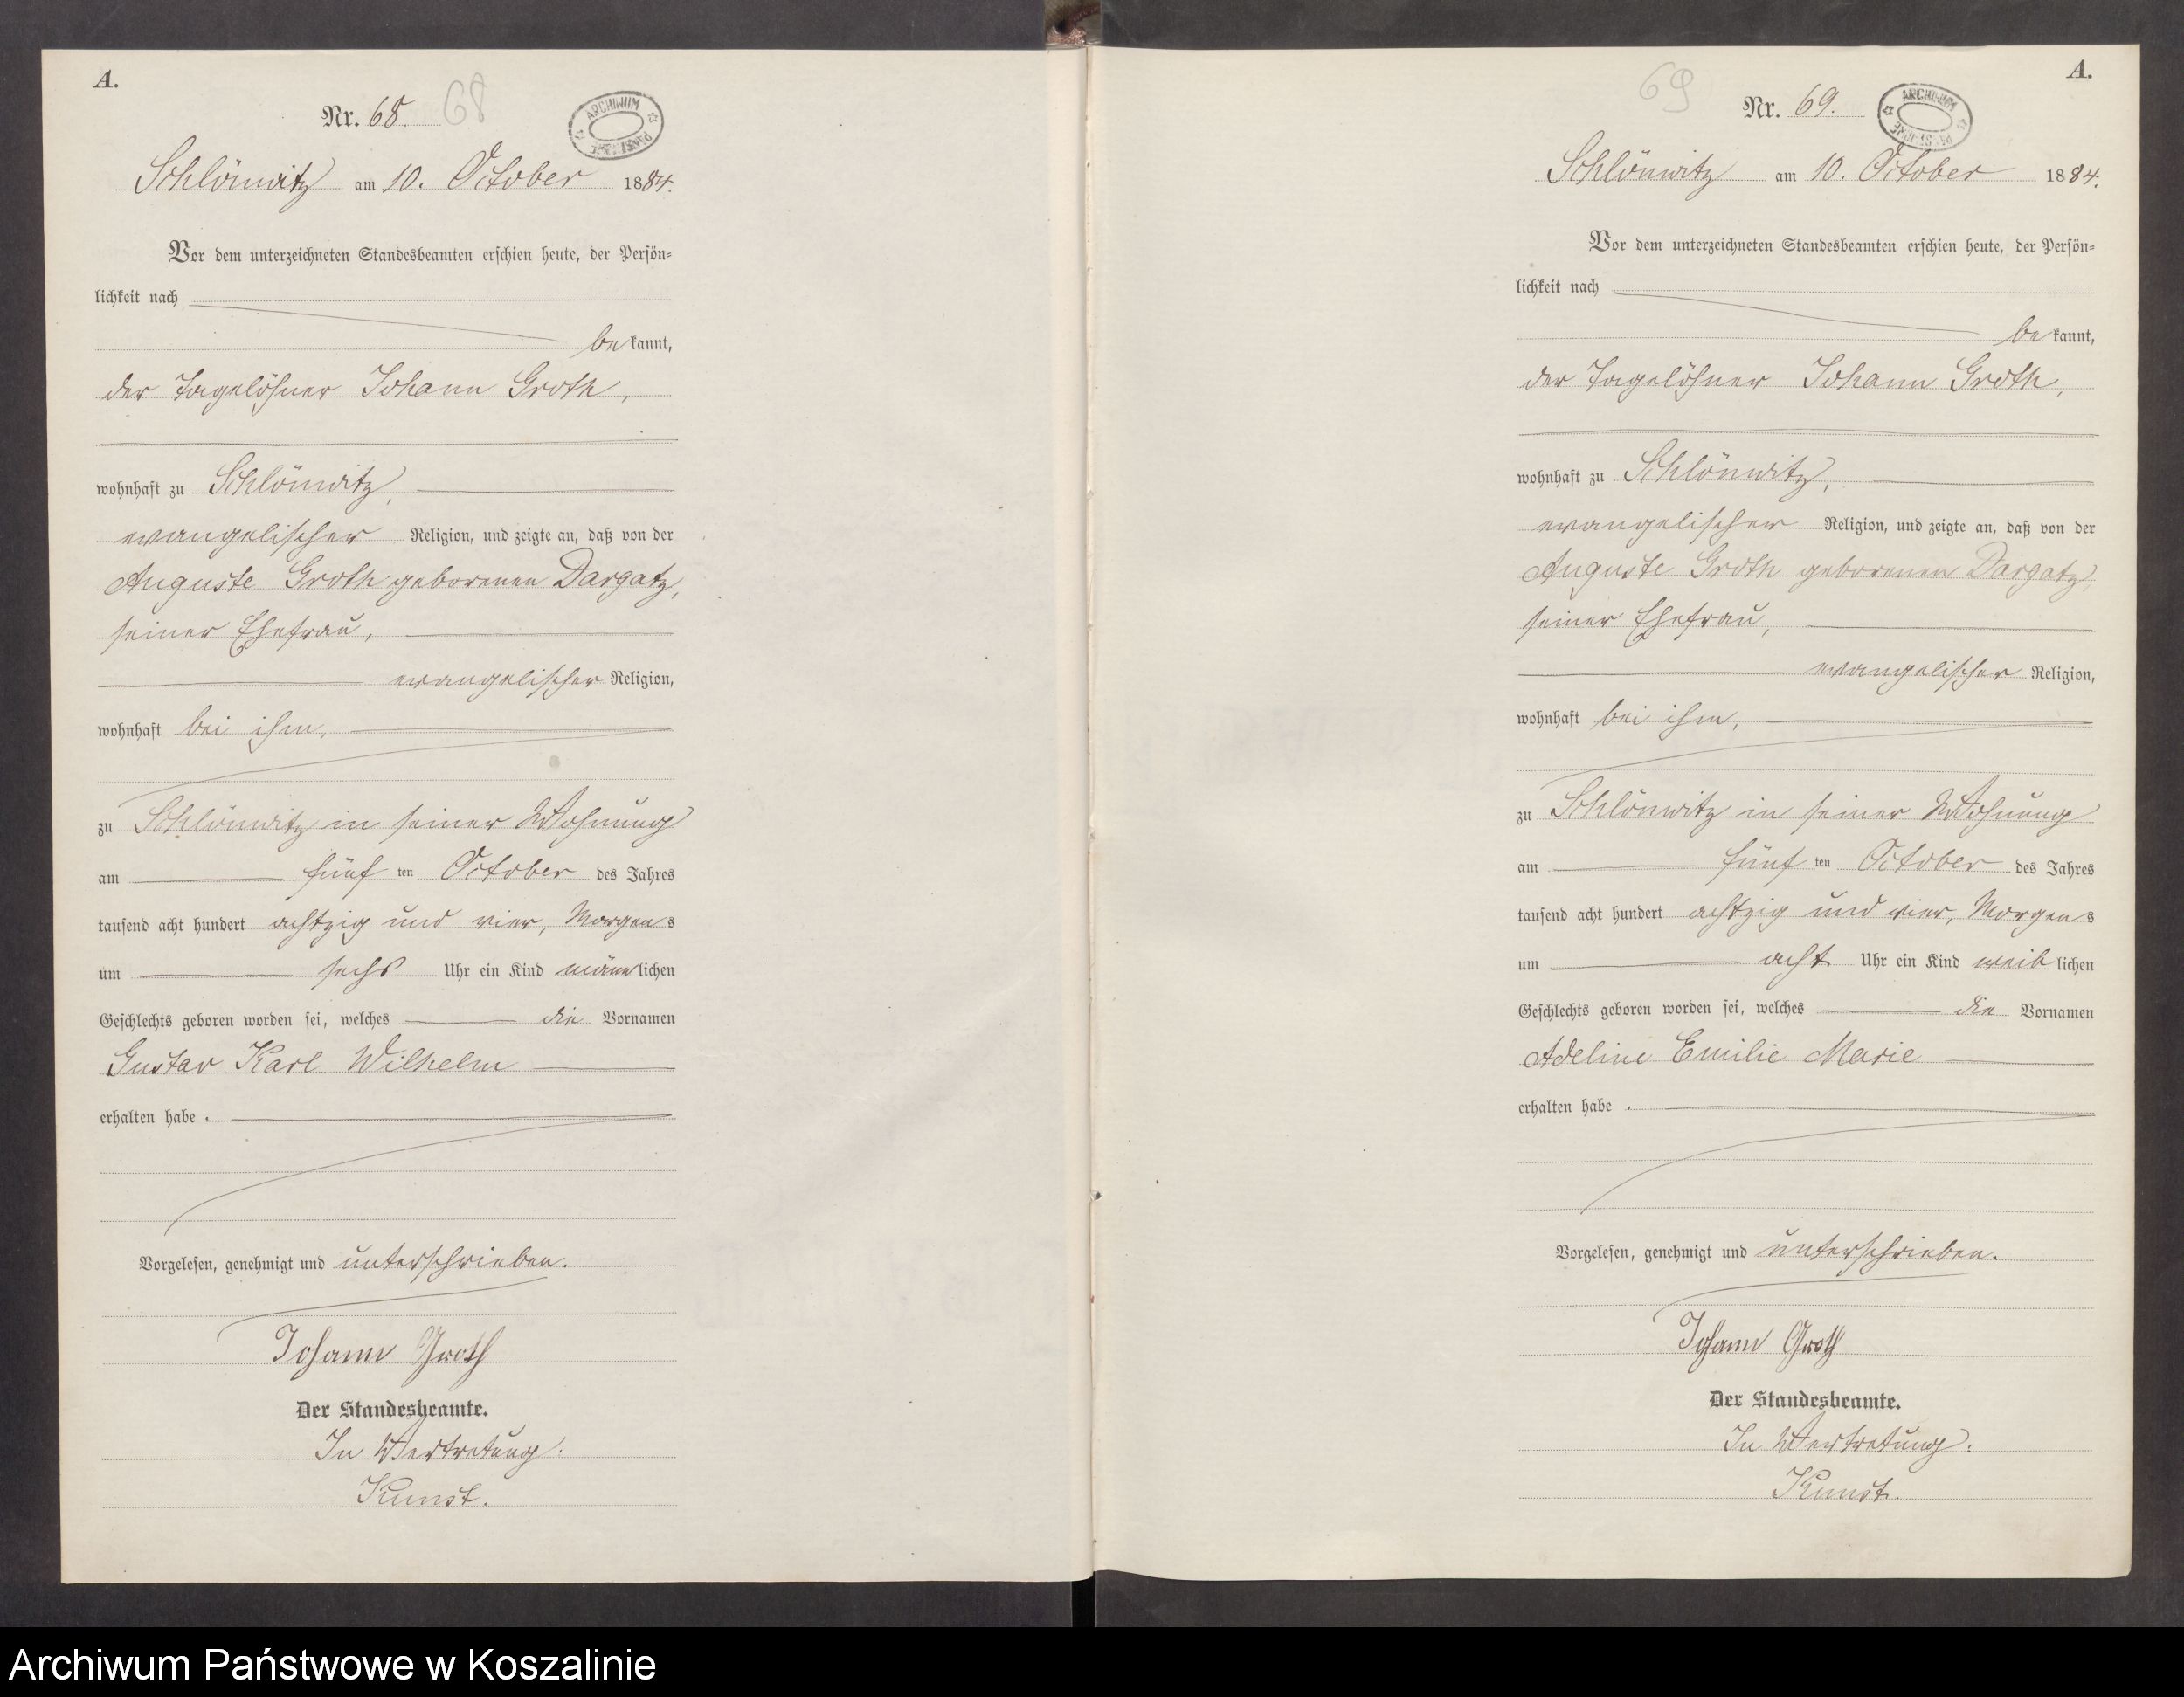 A.
Nr. 68. 68
ARCHIWUM PAŃSTWOWE
Schlönwitz am 10. October 1884.
Vor dem unterzeichneten Standesbeamten erschien heute, der Persön=
lichkeit nach
bekannt,
der Tagelöhner Johann Groth,
wohnhaft zu Schlönwitz,
evangelischer Religion, und zeigte an, daß von der
Auguste Groth geborenen Dargatz,
seiner Ehefrau,
evangelischer Religion,
wohnhaft bei ihm,
zu Schlönwitz in seiner Wohnung
am fünf ten October des Jahres
tausend acht hundert achtzig und vier, Morgens
um sechs Uhr ein Kind männlichen
Geschlechts geboren worden sei, welches die Vornamen
Gustav Karl Wilhelm
erhalten habe.
Vorgelesen, genehmigt und unterschrieben.
Johann Groth
Der Standesbeamte.
In Vertretung.
Kunst.
A.
69 Nr. 69.
ARCHIWUM PAŃSTWOWE
Schlönwitz am 10. October 1884.
Vor dem unterzeichneten Standesbeamten erschien heute, der Persön=
lichkeit nach
bekannt,
der Tagelöhner Johann Groth,
wohnhaft zu Schlönwitz,
evangelischer Religion, und zeigte an, daß von der
Auguste Groth geborenen Dargatz,
seiner Ehefrau,
evangelischer Religion,
wohnhaft bei ihm,
zu Schlönwitz in seiner Wohnung
am fünf ten October des Jahres
tausend acht hundert achtzig und vier, Morgens
um acht Uhr ein Kind weiblichen
Geschlechts geboren worden sei, welches die Vornamen
Adeline Emilie Marie
erhalten habe.
Vorgelesen, genehmigt und unterschrieben.
Johann Groth
Der Standesbeamte.
In Vertretung.
Kunst.
Archiwum Państwowe w Koszalinie